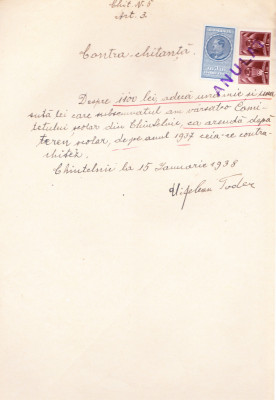 Chit. N. 5
Art. 3.
ANULAT
Contra chitanță.
Despre 1100 lei, adecă una mie si una
sută lei care subsemnatul am vărsat-o Comi-
tetului școlar din Chintelnic, ca arendă după
teren școlar, de pe anul 1937 ceia-ce contra-
chitez.
Chintelnic la 15 Ianuarie 1938
Toder